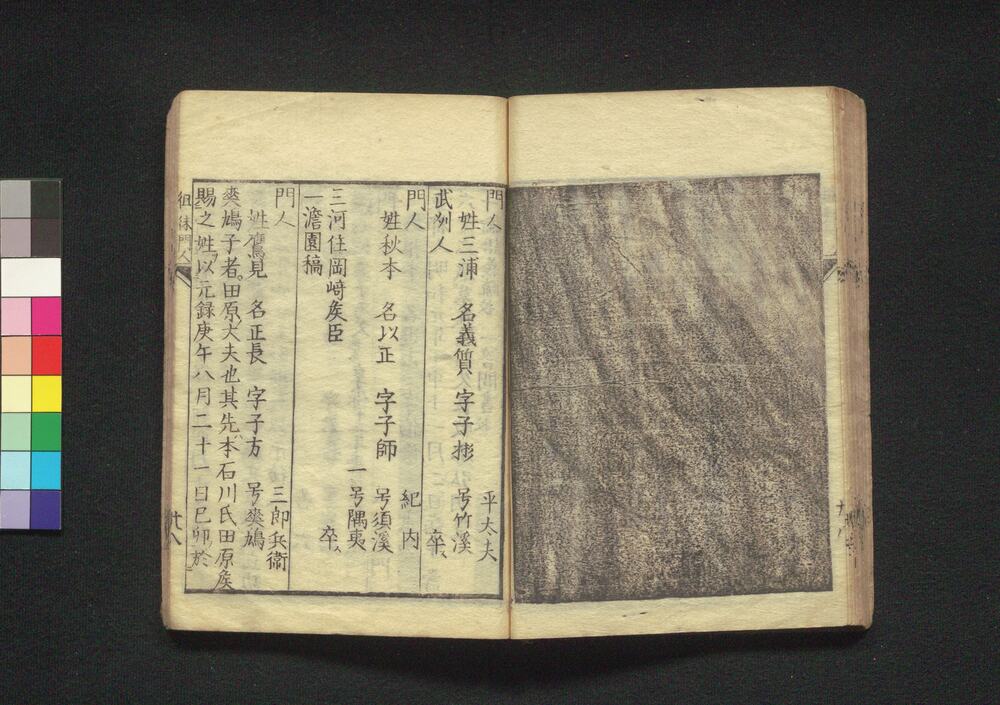 門人
姓三浦 名義質 字子彬 号竹溪 平太夫
武州人 卒
門人
姓秋本 名以正 字子師 号須溪 紀内
一号隅夷
三河住岡﨑矦臣 卒
一澹園稿
門人
姓鷹見 名正長 字子方 号爽鳩 三郎兵衛
爽鳩子者田原大夫也其先本石川氏田原矦
賜之姓以元録庚午八月二十一日己卯於
徂徠門人
廿八